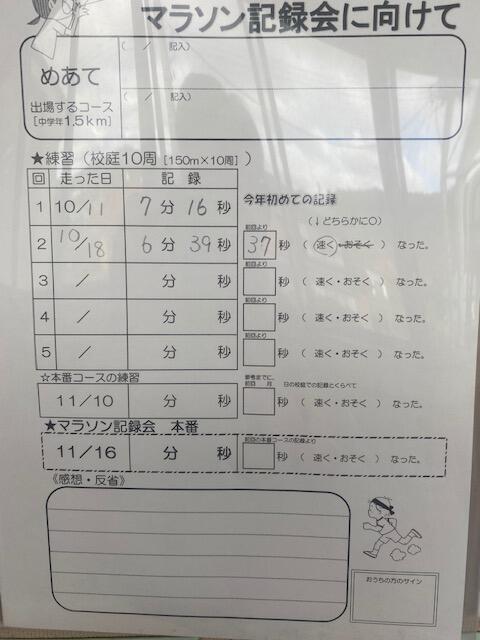 マラソン記録会に向けて
めあて
( / 記入)
出場するコース
[中学年1.5km]
( / 記入)
★練習(校庭10周[150m×10周])
回 走った日 記録
今年初めての記録
1 10/11 7分16秒
(↓どちらかに○)
2 10/18 6分39秒 前回より 37秒 ( 速く・おそく ) なった。
3 / 分 秒 前回より 秒 ( 速く・おそく ) なった。
4 / 分 秒 前回より 秒 ( 速く・おそく ) なった。
5 / 分 秒 前回より 秒 ( 速く・おそく ) なった。
☆本番コースの練習
参考までに、
前回 月 日の校庭での記録とくらべて
11/10 分 秒 秒 ( 速く・おそく ) なった。
★マラソン記録会 本番
前回の本番コースの記録より
11/16 分 秒 秒 ( 速く・おそく ) なった。
《感想・反省》
おうちの方のサイン